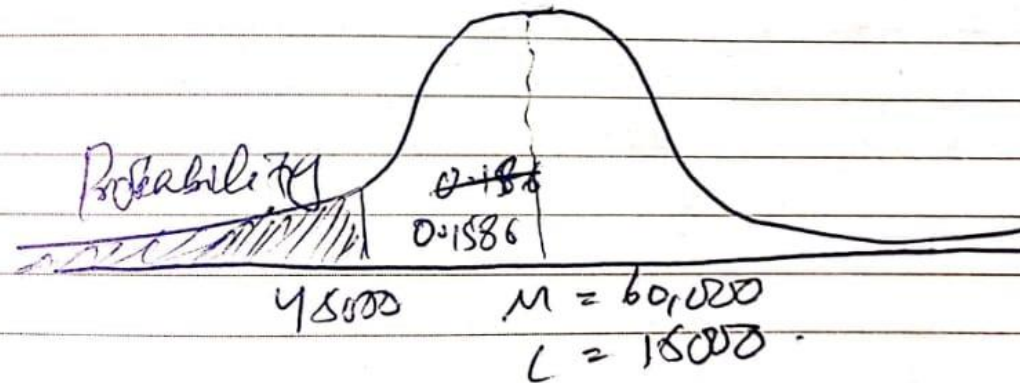 Probability
0.186
0.1586
45000 M = 60,000
L = 15000.